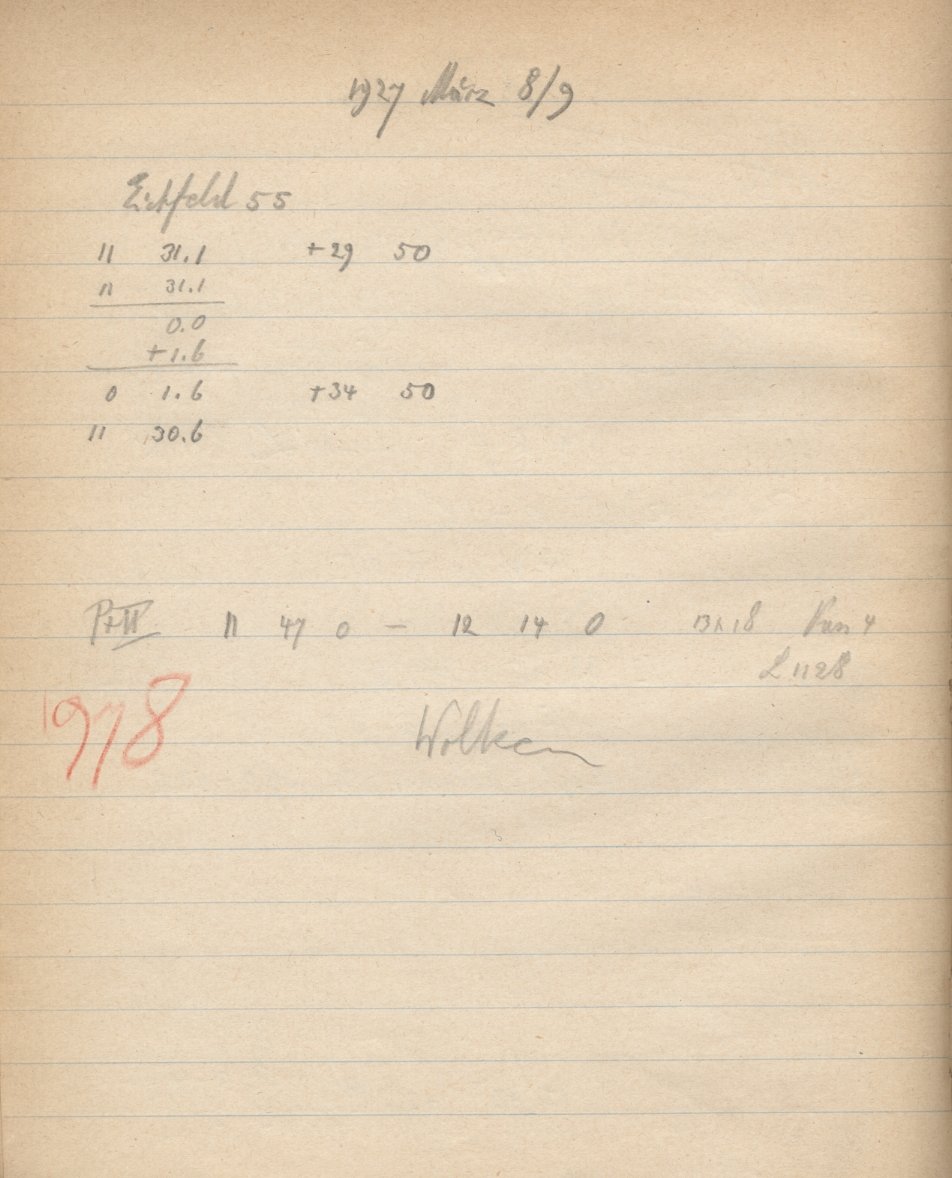 1927 März 8/9
Eichfeld 55
11 31.1 +29 50
11 31.1
0.0
+1.6
0 1.6 +34 50
11 30.6
11 47 0 – 12 14 0 13x18
1128
1978
Wolken